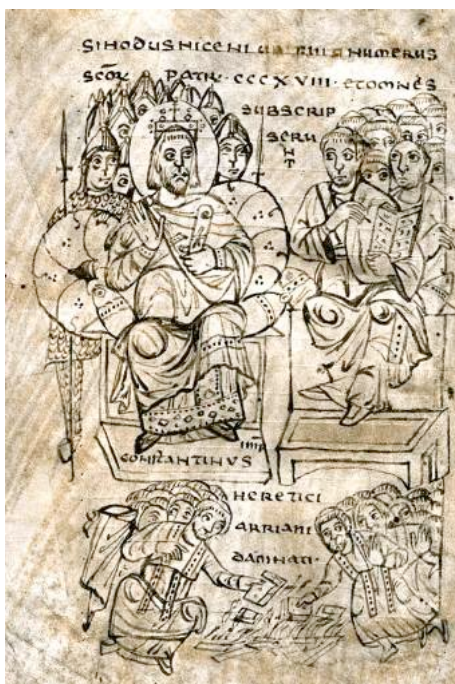 SINODUS NICENI UBI NUMERUS
SCOR PATR · CCCXVIII · ET OMNES
SUBSCRIP
SERU
NT
CONSTANTINUS IMP
HERETICI
ARRIANI
DAMNATI ·